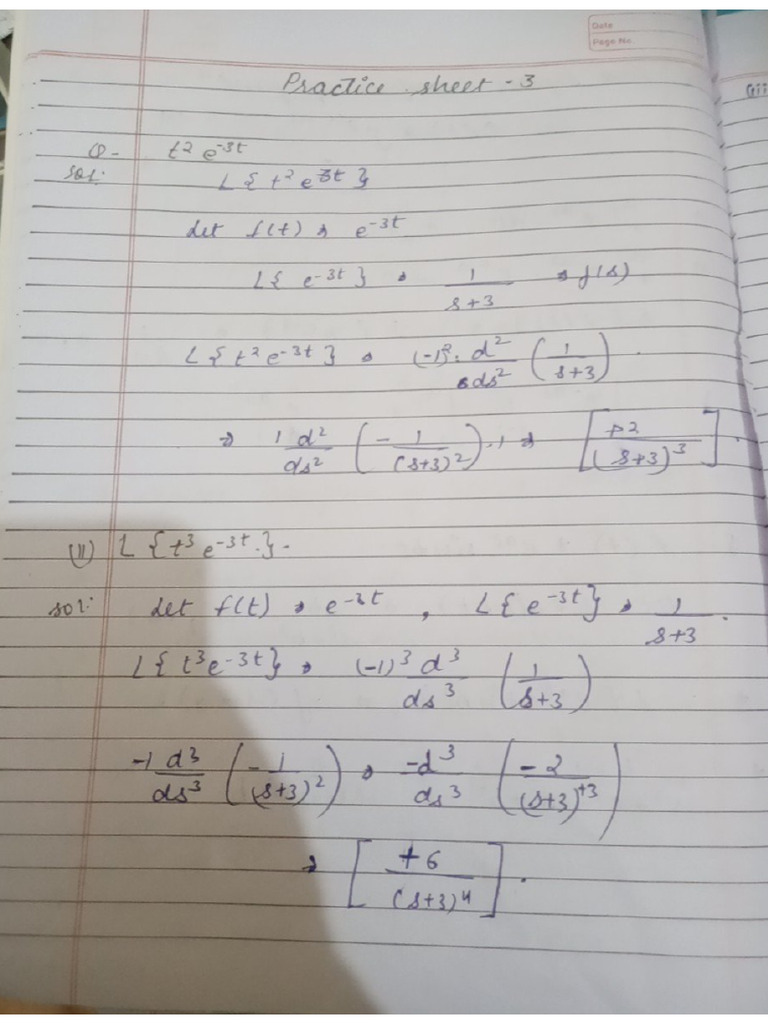 Date
Page No.
Practice sheet - 3
Q- t² e^-3t
Sol: L { t² e^-3t }
Let f(t) ⇒ e^-3t
L{ e^-3t } ⇒ 1/(s+3) ⇒ f(s)
L{ t² e^-3t } ⇒ (-1)². d²/ds² (1/(s+3))
⇒ 1 d²/ds² (-1/(s+3)²).1 ⇒ [+2/(s+3)³].
(II) L { t³ e^-3t. }.
Sol: Let f(t) ⇒ e^-3t , L{ e^-3t } ⇒ 1/(s+3).
L{ t³ e^-3t } ⇒ (-1)³ d³/ds³ (1/(s+3))
-1 d³/ds³ (-1/(s+3)²) ⇒ -d³/ds³ (-2/(s+3)^+3)
⇒ [+6/(s+3)⁴].